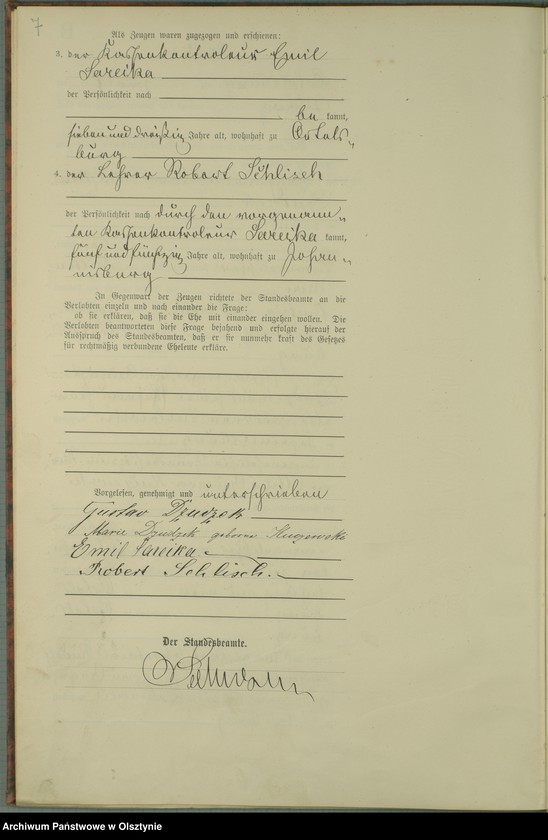 7
Als Zeugen waren zugezogen und erschienen:
3. der Kassenkontroleur Emil
Sareika
der Persönlichkeit nach
be kannt,
sieben und dreißig Jahre alt, wohnhaft zu Ortels-
burg
4. der Lehrer Robert Schlisch
der Persönlichkeit nach durch den vorgenann-
ten Kassenkontroleur Sareika kannt,
fünf und fünfzig Jahre alt, wohnhaft zu Johan-
nisburg
In Gegenwart der Zeugen richtete der Standesbeamte an die
Verlobten einzeln und nach einander die Frage:
ob sie erklären, daß sie die Ehe mit einander eingehen wollen. Die
Verlobten beantworteten diese Frage bejahend und erfolgte hierauf der
Ausspruch des Standesbeamten, daß er sie nunmehr kraft des Gesetzes
für rechtmäßig verbundene Eheleute erkläre.
Vorgelesen, genehmigt und unterschrieben
Gustav Dzudzek
Marie Dzudzek geborene
Emil Sareika
Robert Schlisch.
Der Standesbeamte.
Archiwum Państwowe w Olsztynie